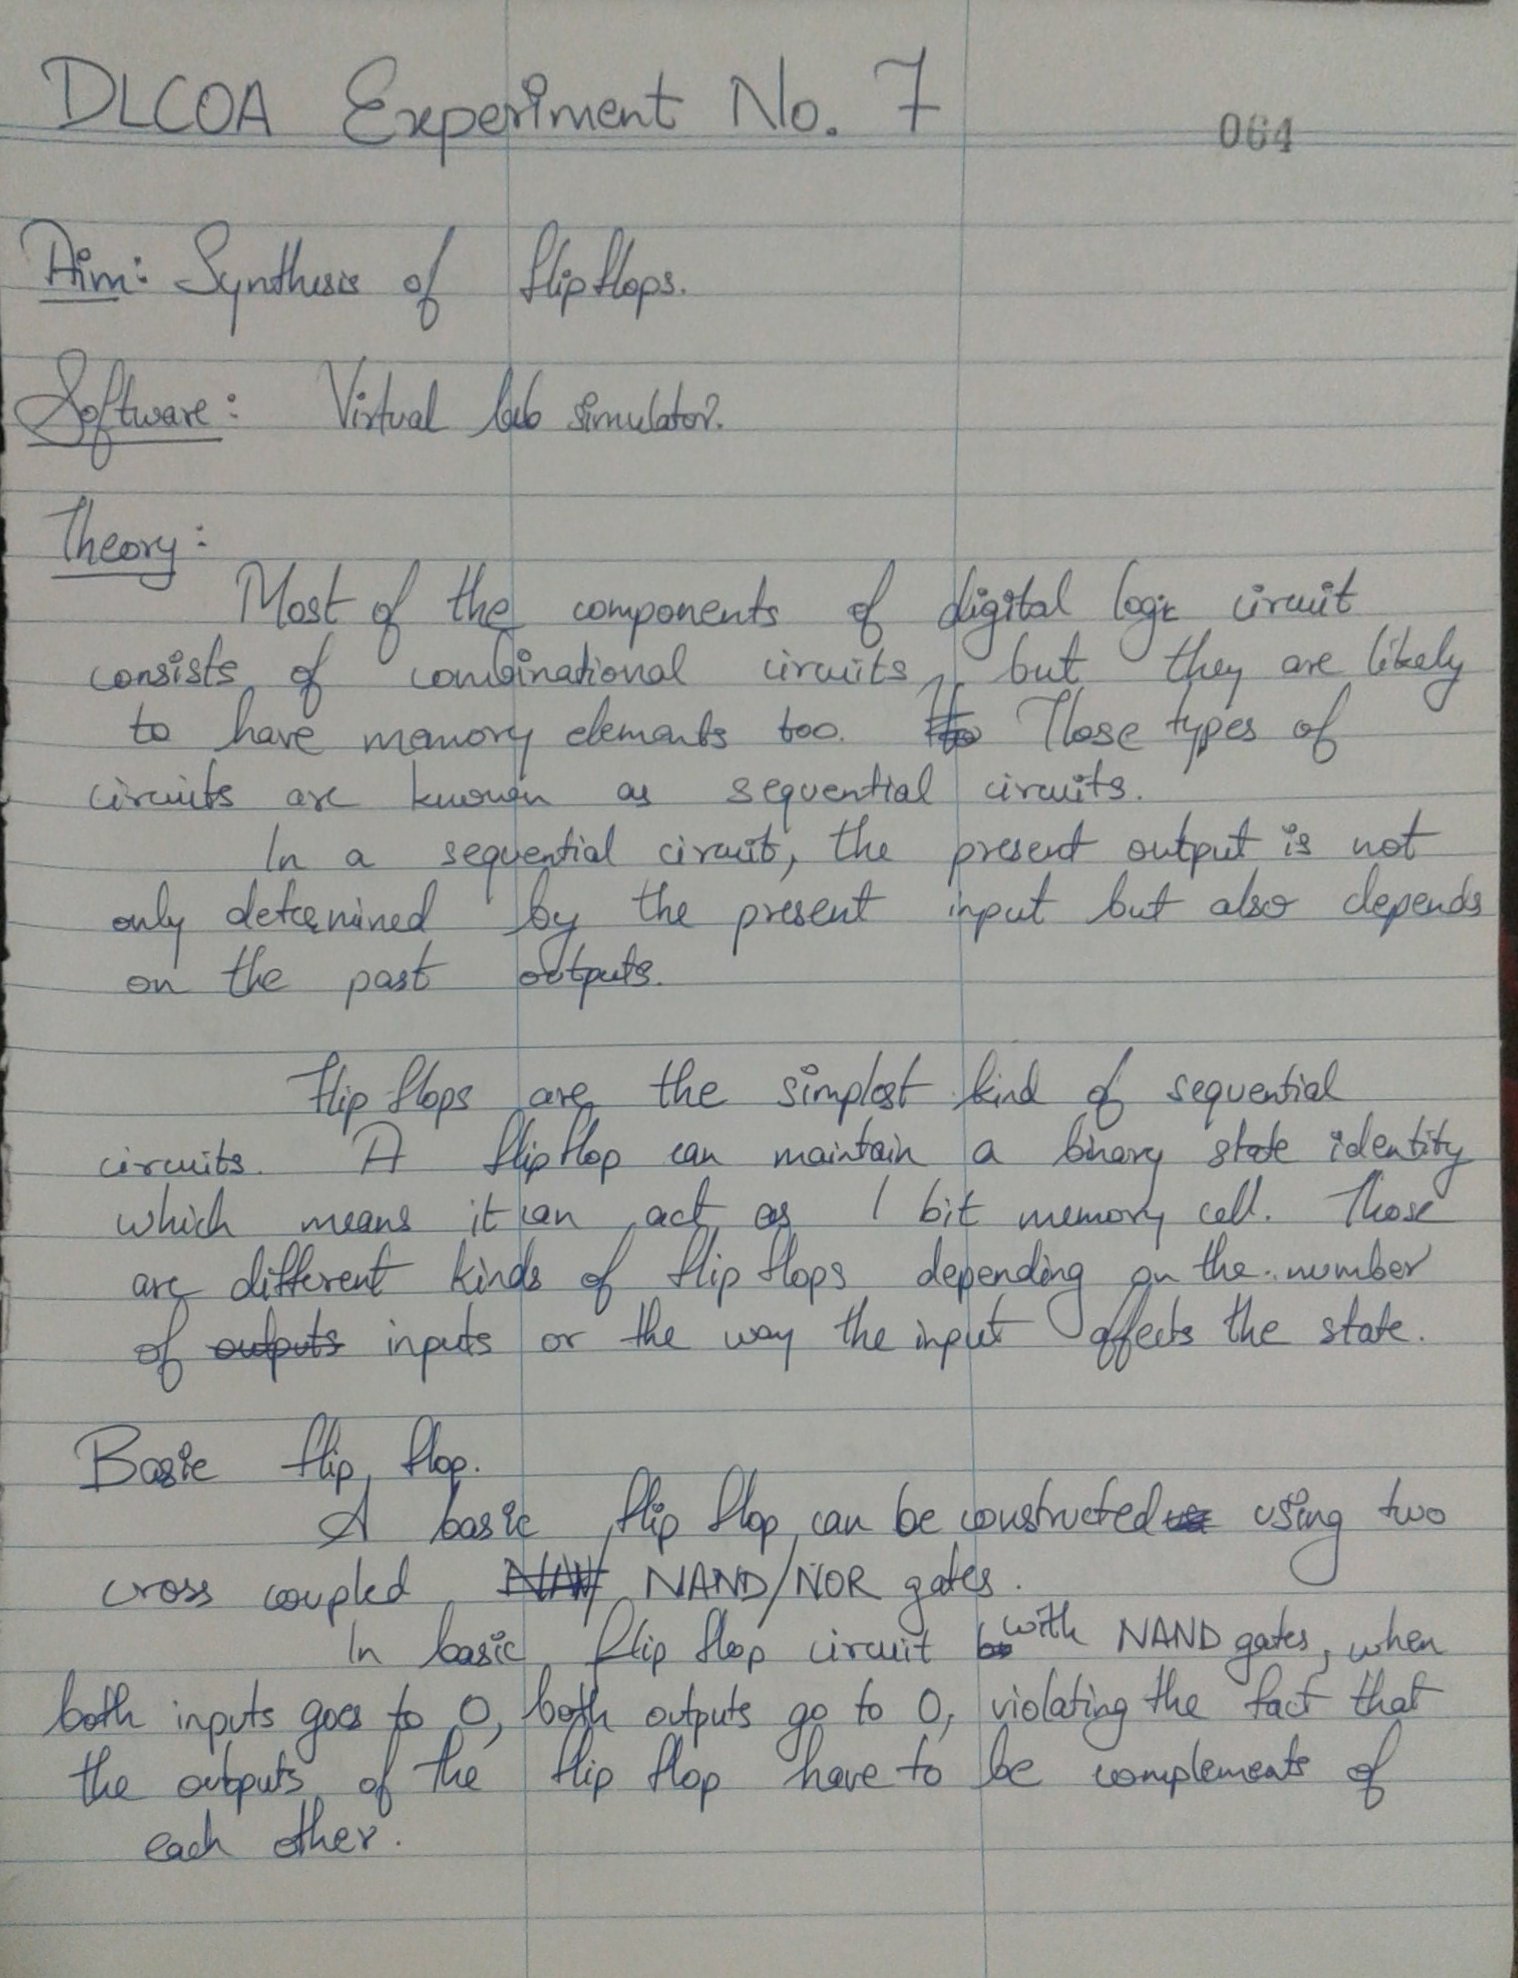 DLCOA Experiment No. 7
064
Aim: Synthesis of flipflops.
Software: Virtual lab simulator.
Theory:
Most of the components of digital logic circuit
consists of combinational circuits, but they are likely
to have memory elements too. Those types of
circuits are known as sequential circuits.
In a sequential circuit, the present output is not
only determined by the present input but also depends
on the past outputs.
Flip flops are the simplest kind of sequential
circuits. A flipflop can maintain a binary state identity
which means it can act as 1 bit memory cell. Those
are different kinds of flip flops depending on the number
of outputs inputs or the way the input affects the state.
Basic flip flop.
A basic flip flop can be constructed using two
cross coupled NAND/NOR gates.
In basic flip flop circuit with NAND gates, when
both inputs goes to 0, both outputs go to 0, violating the fact that
the outputs of the flip flop have to be complements of
each other.